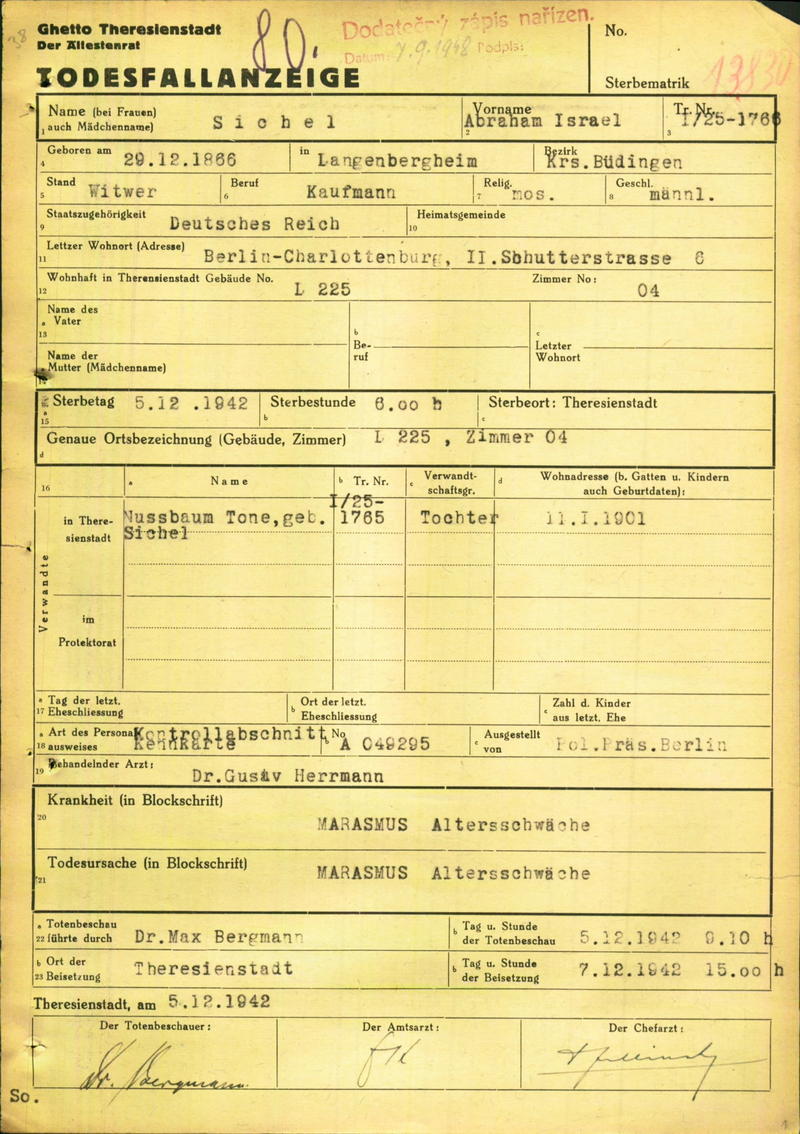 Ghetto Theresienstadt
Der Ältestenrat
TODESFALLANZEIGE
80.
Dodatečný zápis nařízen.
Datum: 7.9.1948 Podpis:
No.
Sterbematrik
Name (bei Frauen)
1 auch Mädchenname) Sichel
Vorname
2 Abraham Israel
Tr. Nr.
3 I/25-1766
4 Geboren am 29.12.1866 in Langenbergheim Bezirk Krs.Büdingen
5 Stand Witwer 6 Beruf Kaufmann 7 Relig. mos. 8 Geschl. männl.
9 Staatszugehörigkeit Deutsches Reich 10 Heimatsgemeinde
11 Lettzer Wohnort (Adresse) Berlin-Charlottenburg, II.Sbhutterstrasse
12 Wohnhaft in Therensienstadt Gebäude No. L 225 Zimmer No: 04
13 a Name des Vater
b Beruf
c Letzter Wohnort
Name der
Mutter (Mädchenname)
15 a Sterbetag 5.12 .1942 b Sterbestunde 6.00 h c Sterbeort: Theresienstadt
d Genaue Ortsbezeichnung (Gebäude, Zimmer) L 225 , Zimmer 04
16 a Name b Tr. Nr. c Verwandtschaftsgr. d Wohnadresse (b. Gatten u. Kindern auch Geburtdaten):
Verwandte
in Theresienstadt
Nussbaum Tone,geb. Sichel I/25-1765 Tochter 11.I.1901
im
Protektorat
17 a Tag der letzt. Eheschliessung b Ort der letzt. Eheschliessung c Zahl d. Kinder aus letzt. Ehe
18 a Art des Personalausweises Kontrollabschnitt Kennkarte b No A 049295 c Ausgestellt von Pol.Präs.Berlin
19 Behandelnder Arzt: Dr.Gustav Herrmann
Krankheit (in Blockschrift)
20 MARASMUS Altersschwäche
Todesursache (in Blockschrift)
21 MARASMUS Altersschwäche
22 a Totenbeschau führte durch Dr.Max Bergmann b Tag u. Stunde der Totenbeschau 5.12.1942 9.10 h
23 b Ort der Beisetzung Theresienstadt b Tag u. Stunde der Beisetzung 7.12.1942 15.00 h
Theresienstadt, am 5.12.1942
Der Totenbeschauer: Der Amtsarzt: Der Chefarzt:
Dr. Bergmann
So.